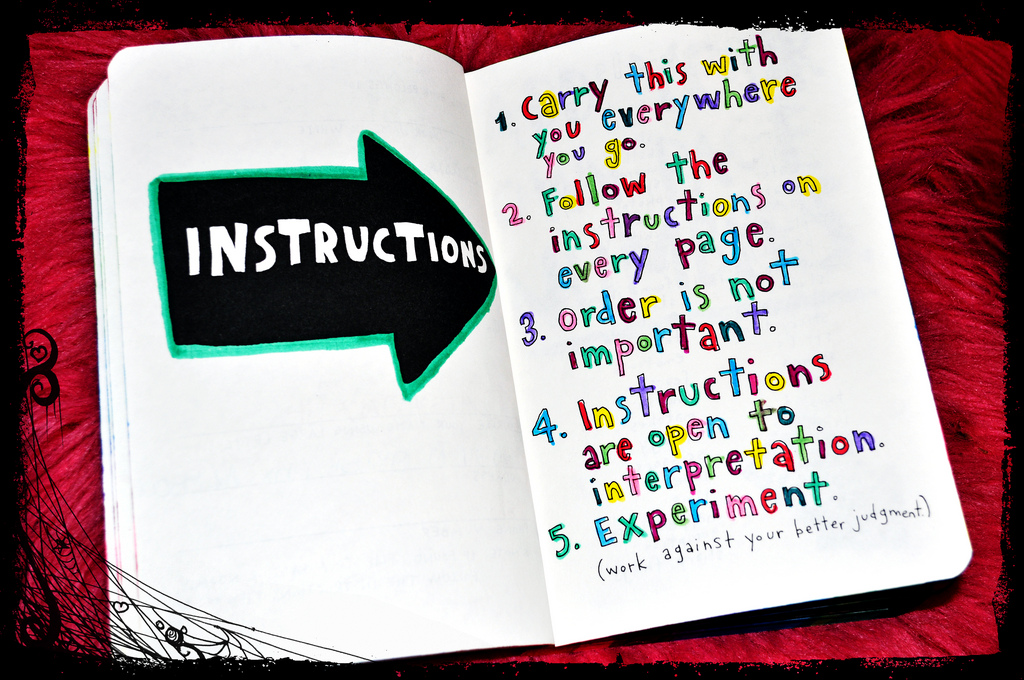 INSTRUCTIONS
1. Carry this with
you everywhere
you go.
2. Follow the
instructions on
every page.
3. order is not
important.
4. Instructions
are open to
interpretation.
5. Experiment.
(work against your better judgment.)